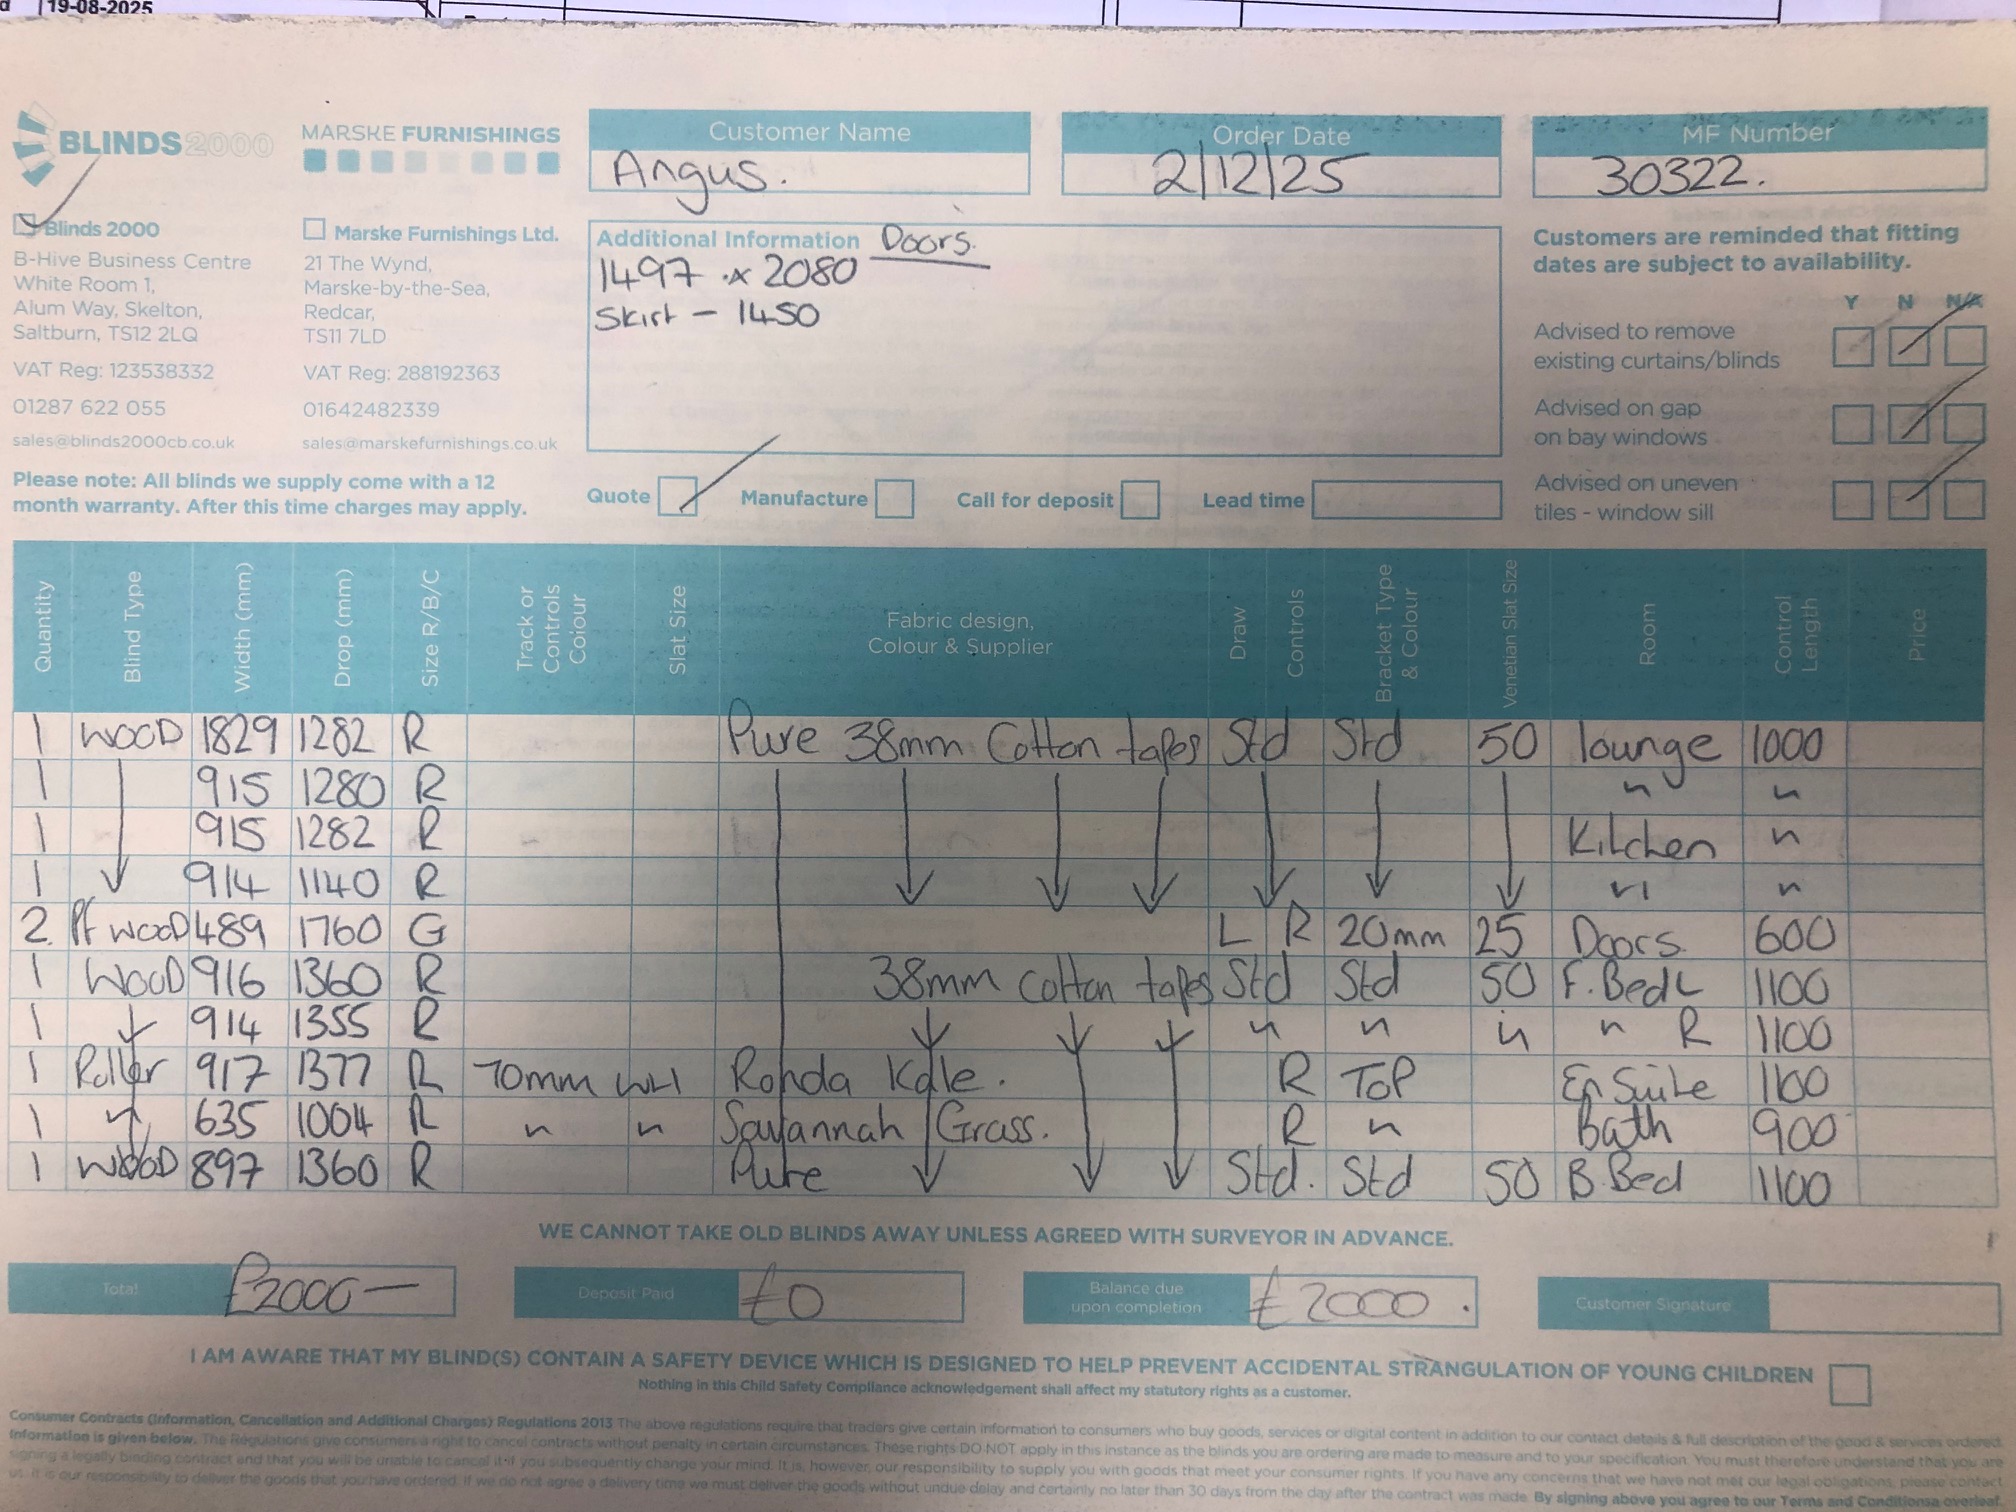 19-08-2025
BLINDS2000
MARSKE FURNISHINGS
Customer Name
Angus.
Order Date
2/12/25
MF Number
30322.
Blinds 2000
B-Hive Business Centre
White Room 1,
Alum Way, Skelton,
Saltburn, TS12 2LQ
VAT Reg: 123538332
01287 622 055
sales@blinds2000cb.co.uk
Marske Furnishings Ltd.
21 The Wynd,
Marske-by-the-Sea,
Redcar,
TS11 7LD
VAT Reg: 288192363
01642482339
sales@marskefurnishings.co.uk
Additional Information Doors.
1497 x 2080
Skirt - 1450
Customers are reminded that fitting
dates are subject to availability.
Y N N/A
Advised to remove
existing curtains/blinds
Advised on gap
on bay windows
Advised on uneven
tiles - window sill
Please note: All blinds we supply come with a 12
month warranty. After this time charges may apply.
Quote Manufacture Call for deposit Lead time
Quantity
Blind Type
Width (mm)
Drop (mm)
Size R/B/C
Track or
Controls
Colour
Slat Size
Fabric design,
Colour & Supplier
Draw
Controls
Bracket Type
& Colour
Venetian Slat Size
Room
Control
Length
Price
1 WOOD 1829 1282 R Pure 38mm Cotton tapes Std Std 50 lounge 1000
1 915 1280 R " "
1 915 1282 R Kitchen "
1 914 1140 R " "
2 Pf WOOD 489 1760 G L R 20mm 25 Doors. 600
1 WOOD 916 1360 R 38mm cotton tapes Std Std 50 F. Bed L 1100
1 914 1355 R " " " " R 1100
1 Roller 917 1377 R 70mm WH Ronda Kale. R TOP En Suite 1100
1 " 635 1004 R " " Savannah Grass. R " Bath 900
1 WOOD 897 1360 R Pure Std. Std 50 B.Bed 1100
WE CANNOT TAKE OLD BLINDS AWAY UNLESS AGREED WITH SURVEYOR IN ADVANCE.
Total £2000—
Deposit Paid £0
Balance due
upon completion £2000.
Customer Signature
I AM AWARE THAT MY BLIND(S) CONTAIN A SAFETY DEVICE WHICH IS DESIGNED TO HELP PREVENT ACCIDENTAL STRANGULATION OF YOUNG CHILDREN
Nothing in this Child Safety Compliance acknowledgement shall affect my statutory rights as a customer.
Consumer Contracts (Information, Cancellation and Additional Charges) Regulations 2013 The above regulations require that traders give certain information to consumers who buy goods, services or digital content in addition to our contact details & full description of the good & services ordered.
Information is given below. The Regulations give consumers a right to cancel contracts without penalty in certain circumstances. These rights DO NOT apply in this instance as the blinds you are ordering are made to measure and to your specification. You must therefore understand that you are
signing a legally binding contract and that you will be unable to cancel it if you subsequently change your mind. It is, however, our responsibility to supply you with goods that meet your consumer rights. If you have any concerns that we have not met our legal obligations, please contact
us. It is our responsibility to deliver the goods that you have ordered. If we do not agree a delivery time we must deliver the goods without undue delay and certainly no later than 30 days from the day after the contract was made. By signing above you agree to our Terms and Conditions overleaf